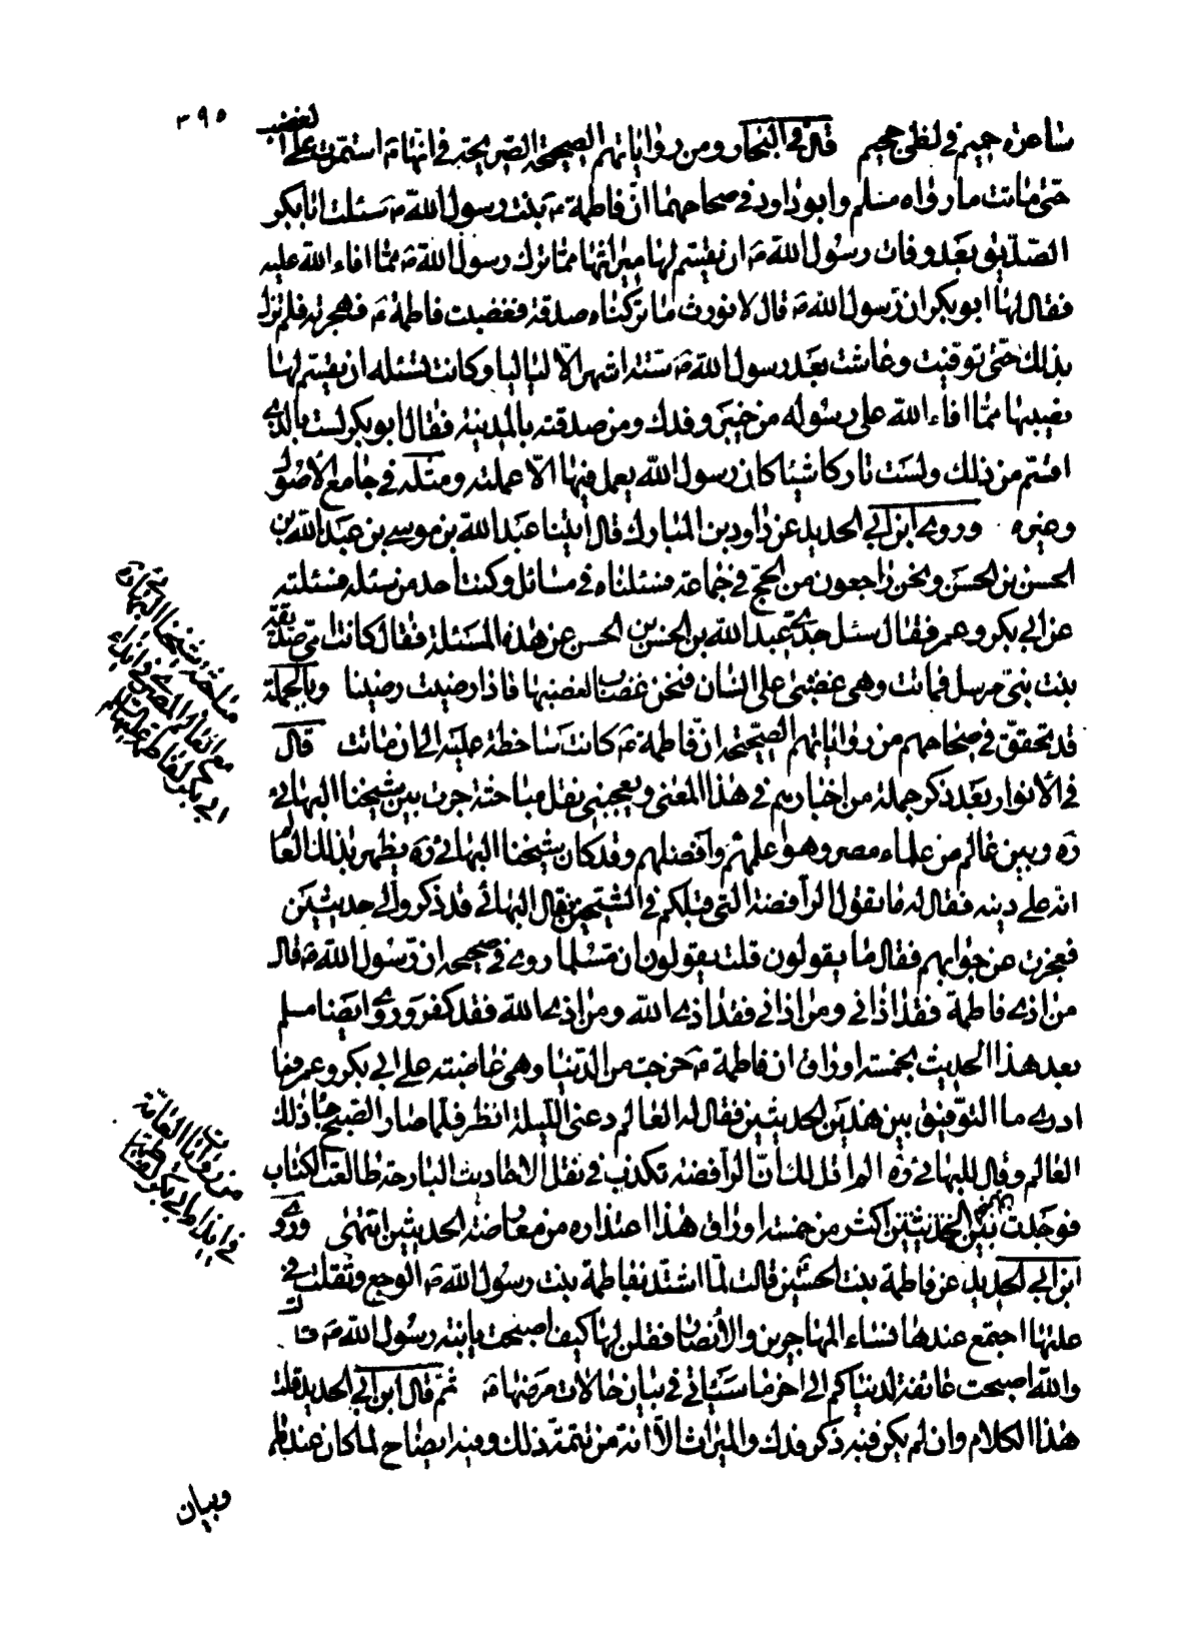 ٣٩٥
ساعرة جميم في لظى جحيم قال في البحار ومن رواياتهم الصحيحة الصريحة في انها ع استمرت على الغضب
حتى ماتت ما رواه مسلم وابو داود في صحاحهما ان فاطمة ع بنت رسول الله ص سئلت ابا بكر
الصديق بعد وفات رسول الله ص ان يقسم لها ميراثها مما ترك رسول الله ص مما افاء الله عليه
فقال لها ابو بكر ان رسول الله ص قال لا نورث ما تركناه صدقة فغضبت فاطمة ع فهجرته فلم تزل
بذلك حتى توفيت وعاشت بعد رسول الله ص ستة اشهر الا لياليا وكانت تسئله ان يقسم لها
نصيبها مما افاء الله على رسوله من خيبر وفدك ومن صدقته بالمدينة فقال ابو بكر لست بالذي
اقسم من ذلك ولست تاركا شيئا كان رسول الله يعمل فيها الا عملته ومثله في جامع الاصول
وغيره وروى ابن ابي الحديد عن داود بن المبارك قال اتينا عبد الله بن موسى بن عبد الله بن
الحسن بن الحسن ونحن راجعون من الحج في جماعة فسئلناه في مسائل وكنت احد من سئله فسئلته
عن ابي بكر وعمر فقال سئل جدي عبد الله بن الحسن بن الحسن عن هذه المسئلة فقال كانت امي صديقة
بنت نبي مرسل فماتت وهي غضبى على انسان فنحن غضاب لغضبها فاذا رضيت رضينا وبالجملة
قد تحقق في صحاحهم من رواياتهم الصحيحة ان فاطمة ع كانت ساخطة عليه الى ان ماتت قال
في الأنوار بعد ذكر جملة من اخبارهم في هذا المعنى ويعجبني نقل مباحثة جرت بين شيخنا البهائي
ره وبين عالم من علماء مصر وهو اعلمهم وافضلهم وقد كان شيخنا البهائي ره يظهر لذلك العالم
انه على دينه فقال له ما تقول الرافضة التي قبلكم في الشيخين قال البهائي قد ذكروا لي حديثين
فعجزت عن جوابهم فقال ما يقولون قلت يقولون ان مسلما روى في صحيحه ان رسول الله ص قال
من اذى فاطمة فقد اذاني ومن اذاني فقد اذى الله ومن اذى الله فقد كفر وروى ايضا مسلم
بعد هذا الحديث بخمسة اوراق ان فاطمة ع خرجت من الدنيا وهي غاضبة على ابي بكر وعمر فما
ادرى ما التوفيق بين هذين الحديثين فقال له العالم دعني الليلة انظر فلما صار الصبح جاء ذلك
العالم وقال للبهائي ره الم اقل لك ان الرافضة تكذب في نقل الاحاديث البارحة طالعت الكتاب
فوجدت بين الحديثين اكثر من خمسة اوراق هذا اعتذاره من معارضة الحديثين انتهى وروى
ابن ابي الحديد عن فاطمة بنت الحسين قالت لما اشتد بفاطمة بنت رسول الله ص الوجع وثقلت في
علتها اجتمع عندها نساء المهاجرين والأنصار فقلن لها كيف اصبحت يا ابنة رسول الله ص قالت
والله اصبحت عائفة لدنياكم الى اخر ما سيأتي في بيان حالات مرضها ع ثم قال ابن ابي الحديد قلت
هذا الكلام وان لم يكن فيه ذكر فدك والميراث الا انه من تتمة ذلك وفيه ايضاح لما كان عندها
وبيان
مباحثة شيخنا البهائي
مع العالم المصري في ايذاء
ابي بكر لفاطمة عليها السلام
من روايات العامة
في ايذاء ابي بكر لفاطمة